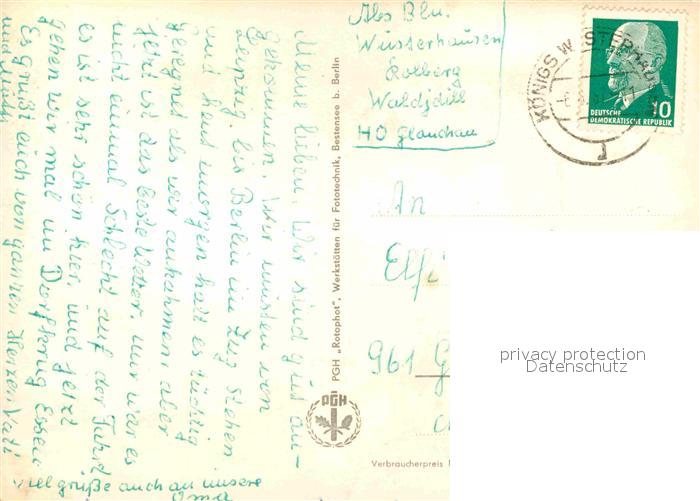 Meine lieben. Wir sind gut an-
gekommen. Wir musten von
Leipzig bis Berlin im Zug stehen
und heut morgen hatt es tüchtig
geregnet als wir ankahmen aber
jetzt ist das beste Wetter, nur war es
nicht einmal Schlecht auf der Fahrt
es ist sehr schön hier, und jetzt
gehen wir mal im Dorfkrug Essen
Es grüßt euch von ganzen Herzen Vati
und Mutti
viel grüße auch an unsere
Oma
PGH „Rotophot", Werkstätten für Fototechnik, Bestensee b. Berlin
PGH
Abs Blu.
Wusterhausen
Kolberg
Waldidill
HO Glauchau
KÖNIGS WUSTERHAUSEN
DEUTSCHE
DEMOKRATISCHE REPUBLIK
10
An
Elf
961 G
Verbraucherpreis
privacy protection
Datenschutz